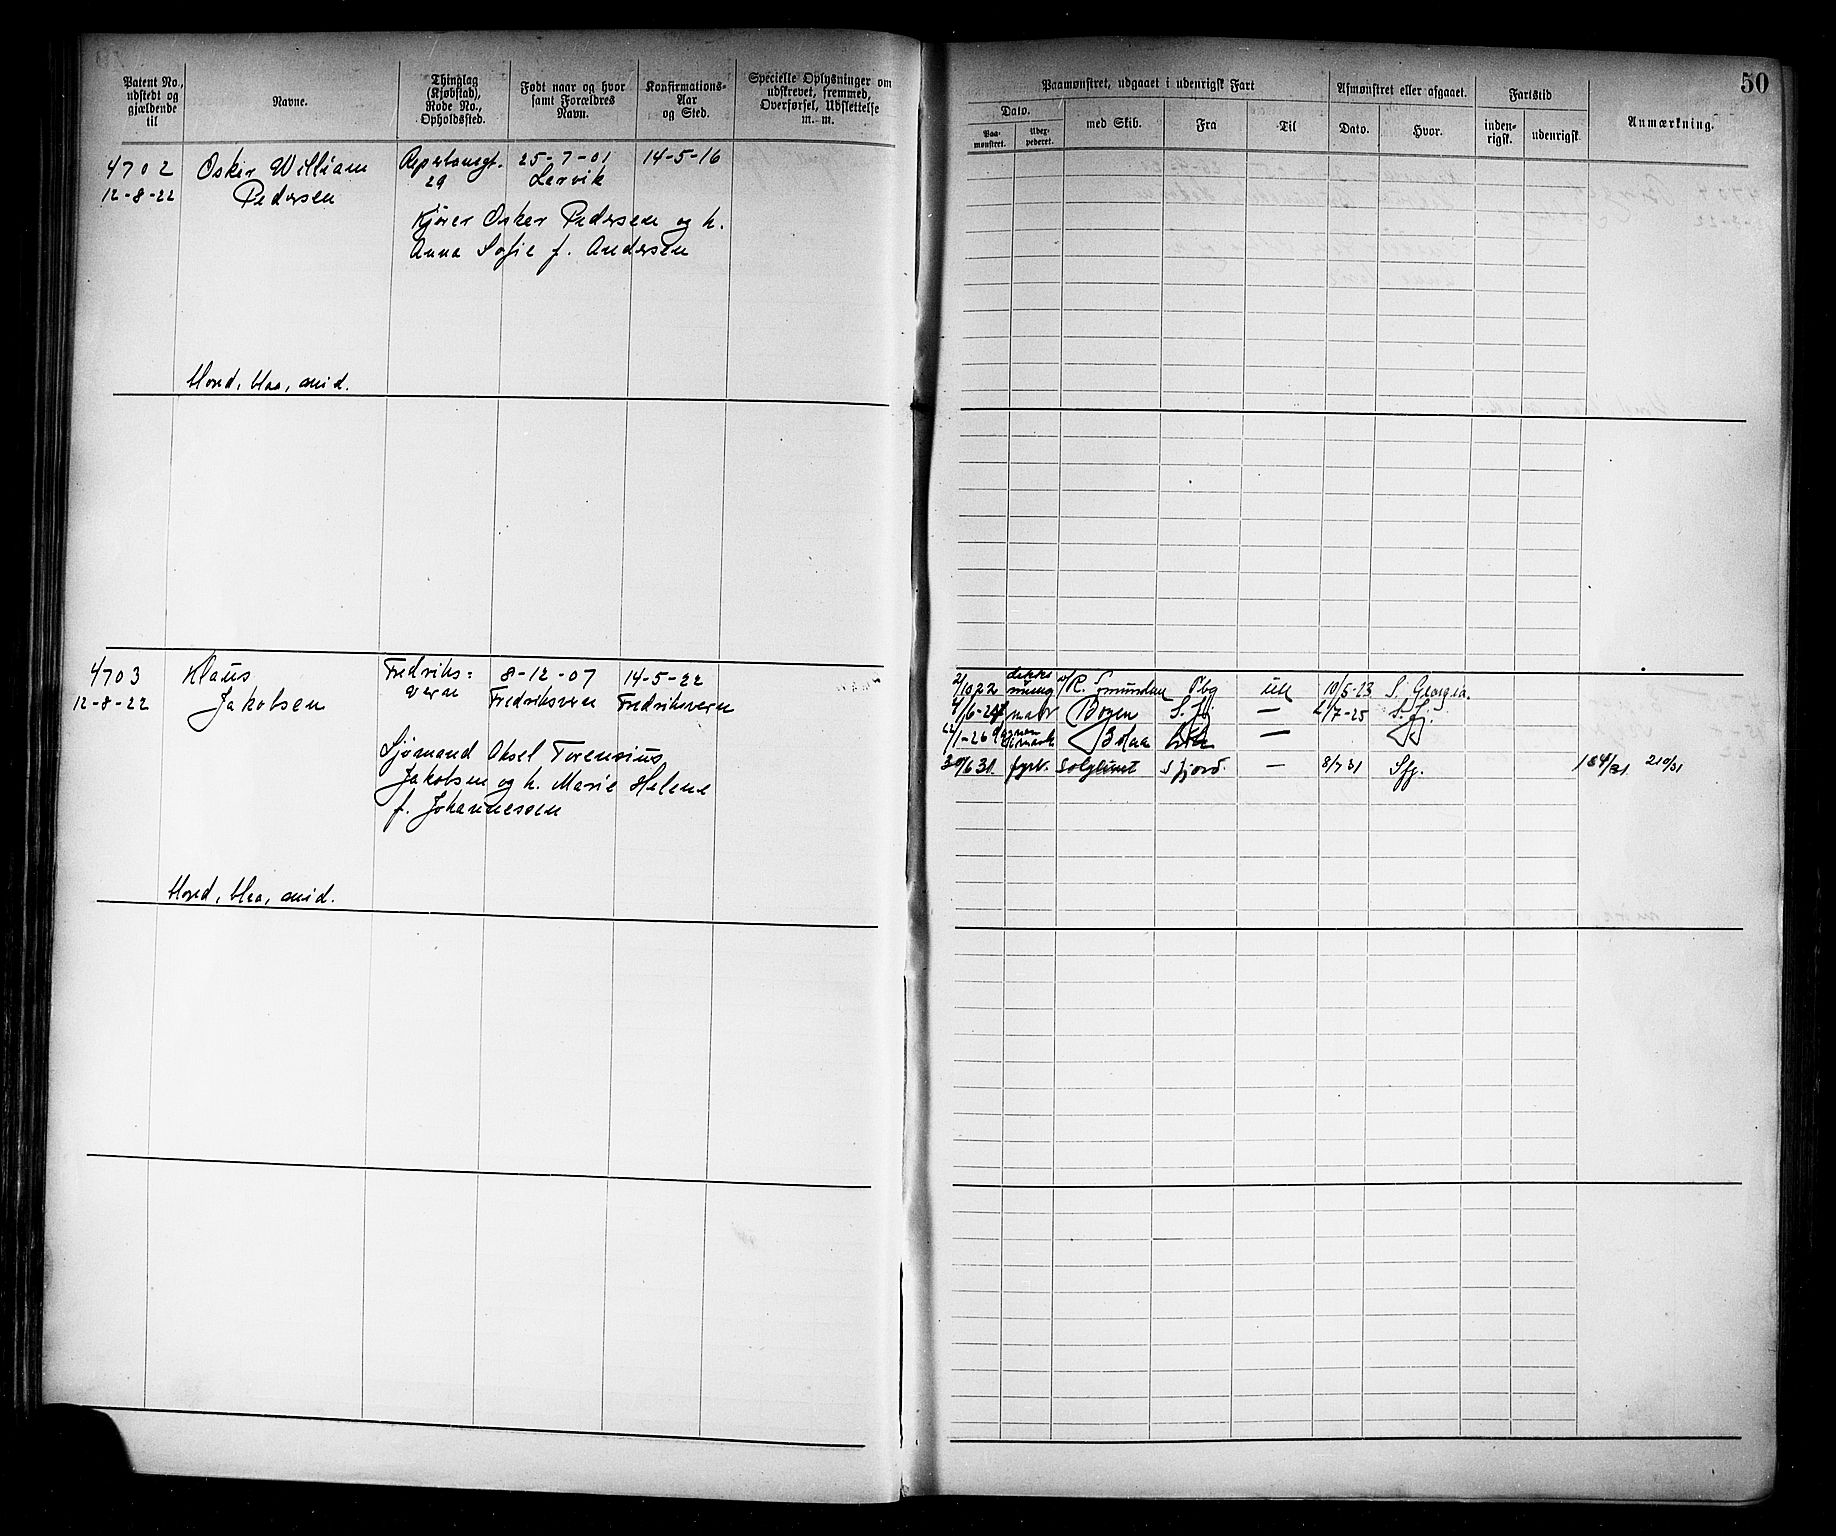 Patent No.,
udstedt og
gjældende
til
Navne.
Thinglag
(Kjøbstad),
Rode No.,
Opholdssted.
Født naar og hvor
samt Forældres
Navn.
Konfirmations-
Aar
og Sted.
Specielle Oplysninger om
udskrevet, fremmed,
Overførsel, Udslettelse
m. m.
4702
12-8-22
Oskar William
Pedersen
29
25-7-01
Larvik
14-5-16
Kjører Oskar Pedersen og h.
Anna Sofie f. Andersen
blond, blaa, mid.
4703
12-8-22
Klaus
Jakobsen
Fredriks=
vern
8-12-07
Fredriksvern
14-5-22
Fredriksvern
Sjømand Aksel Torensius
Jakobsen og h. Marie Helene
f. Johannessen
blond, blaa, mid.
50
Paamønstret, udgaaet i udenrigsk Fart
Afmønstret eller afgaaet.
Fartstid
Anmærkning.
Dato.
Paa-
mønstret.
med Skib.
Fra
Til
Dato.
Hvor.
inden-
rigsk.
udenrigsk.
2/10 22 R. Amundsen Tbg utl 10/5-23 S. Georgia.
matr Bogen S. Fj — S. Fj.
1-26 —
30/6 31. fyrb. Solglimt S fjord. — 8/7 31 Sfj. 184/31 210/31